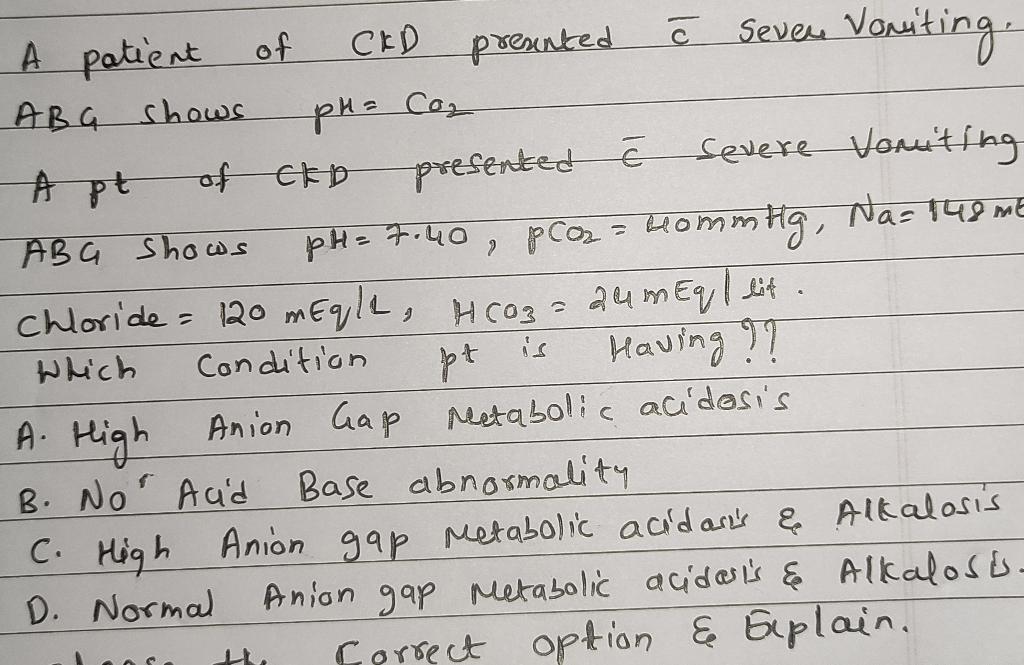 A patient of CKD presented c̄ Sever Vomiting.
ABG shows pH = CO2
A pt of CKD presented c̄ Severe Vomiting
ABG Shows pH = 7.40, pCO2 = 40mmHg, Na= 148 mE
Chloride = 120 mEq/L, HCO3 = 24 mEq/lit.
Which Condition pt is Having ??
A. High Anion Gap Metabolic acidosis
B. No Acid Base abnormality
C. High Anion gap Metabolic acidosis & Alkalosis
D. Normal Anion gap Metabolic acidosis & Alkalosis.
the Correct option & Explain.